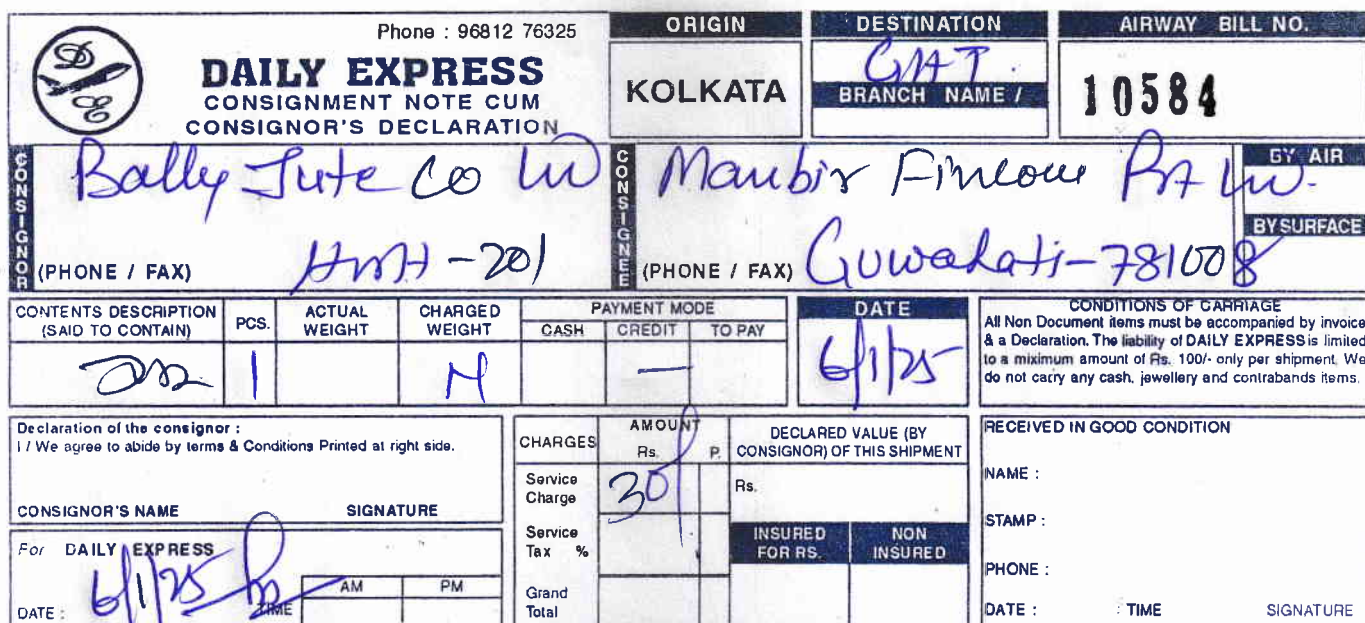 Phone : 96812 76325
DAILY EXPRESS
CONSIGNMENT NOTE CUM
CONSIGNOR'S DECLARATION
ORIGIN
KOLKATA
DESTINATION
GAT.
BRANCH NAME /
AIRWAY BILL NO.
10584
CONSIGNOR
Bally Jute Co Ltd
(PHONE / FAX)
-201
CONSIGNEE
Manbir Fincom Pvt Ltd.
(PHONE / FAX) Guwahati-781008
BY AIR
BY SURFACE
CONTENTS DESCRIPTION
(SAID TO CONTAIN)
PCS.
1
ACTUAL
WEIGHT
CHARGED
WEIGHT
N
PAYMENT MODE
CASH CREDIT TO PAY
—
DATE
6/1/25
CONDITIONS OF CARRIAGE
All Non Document items must be accompanied by invoice
& a Declaration. The liability of DAILY EXPRESS is limited
to a miximum amount of Rs. 100/- only per shipment. We
do not carry any cash, jewellery and contrabands items.
Declaration of the consignor :
I / We agree to abide by terms & Conditions Printed at right side.
CONSIGNOR'S NAME SIGNATURE
For DAILY EXPRESS
DATE : 6/1/25 TIME
AM PM
CHARGES
AMOUNT
Rs. P.
Service
Charge
30/
Service
Tax %
Grand
Total
DECLARED VALUE (BY
CONSIGNOR) OF THIS SHIPMENT
Rs.
INSURED
FOR RS.
NON
INSURED
RECEIVED IN GOOD CONDITION
NAME :
STAMP :
PHONE :
DATE : : TIME SIGNATURE